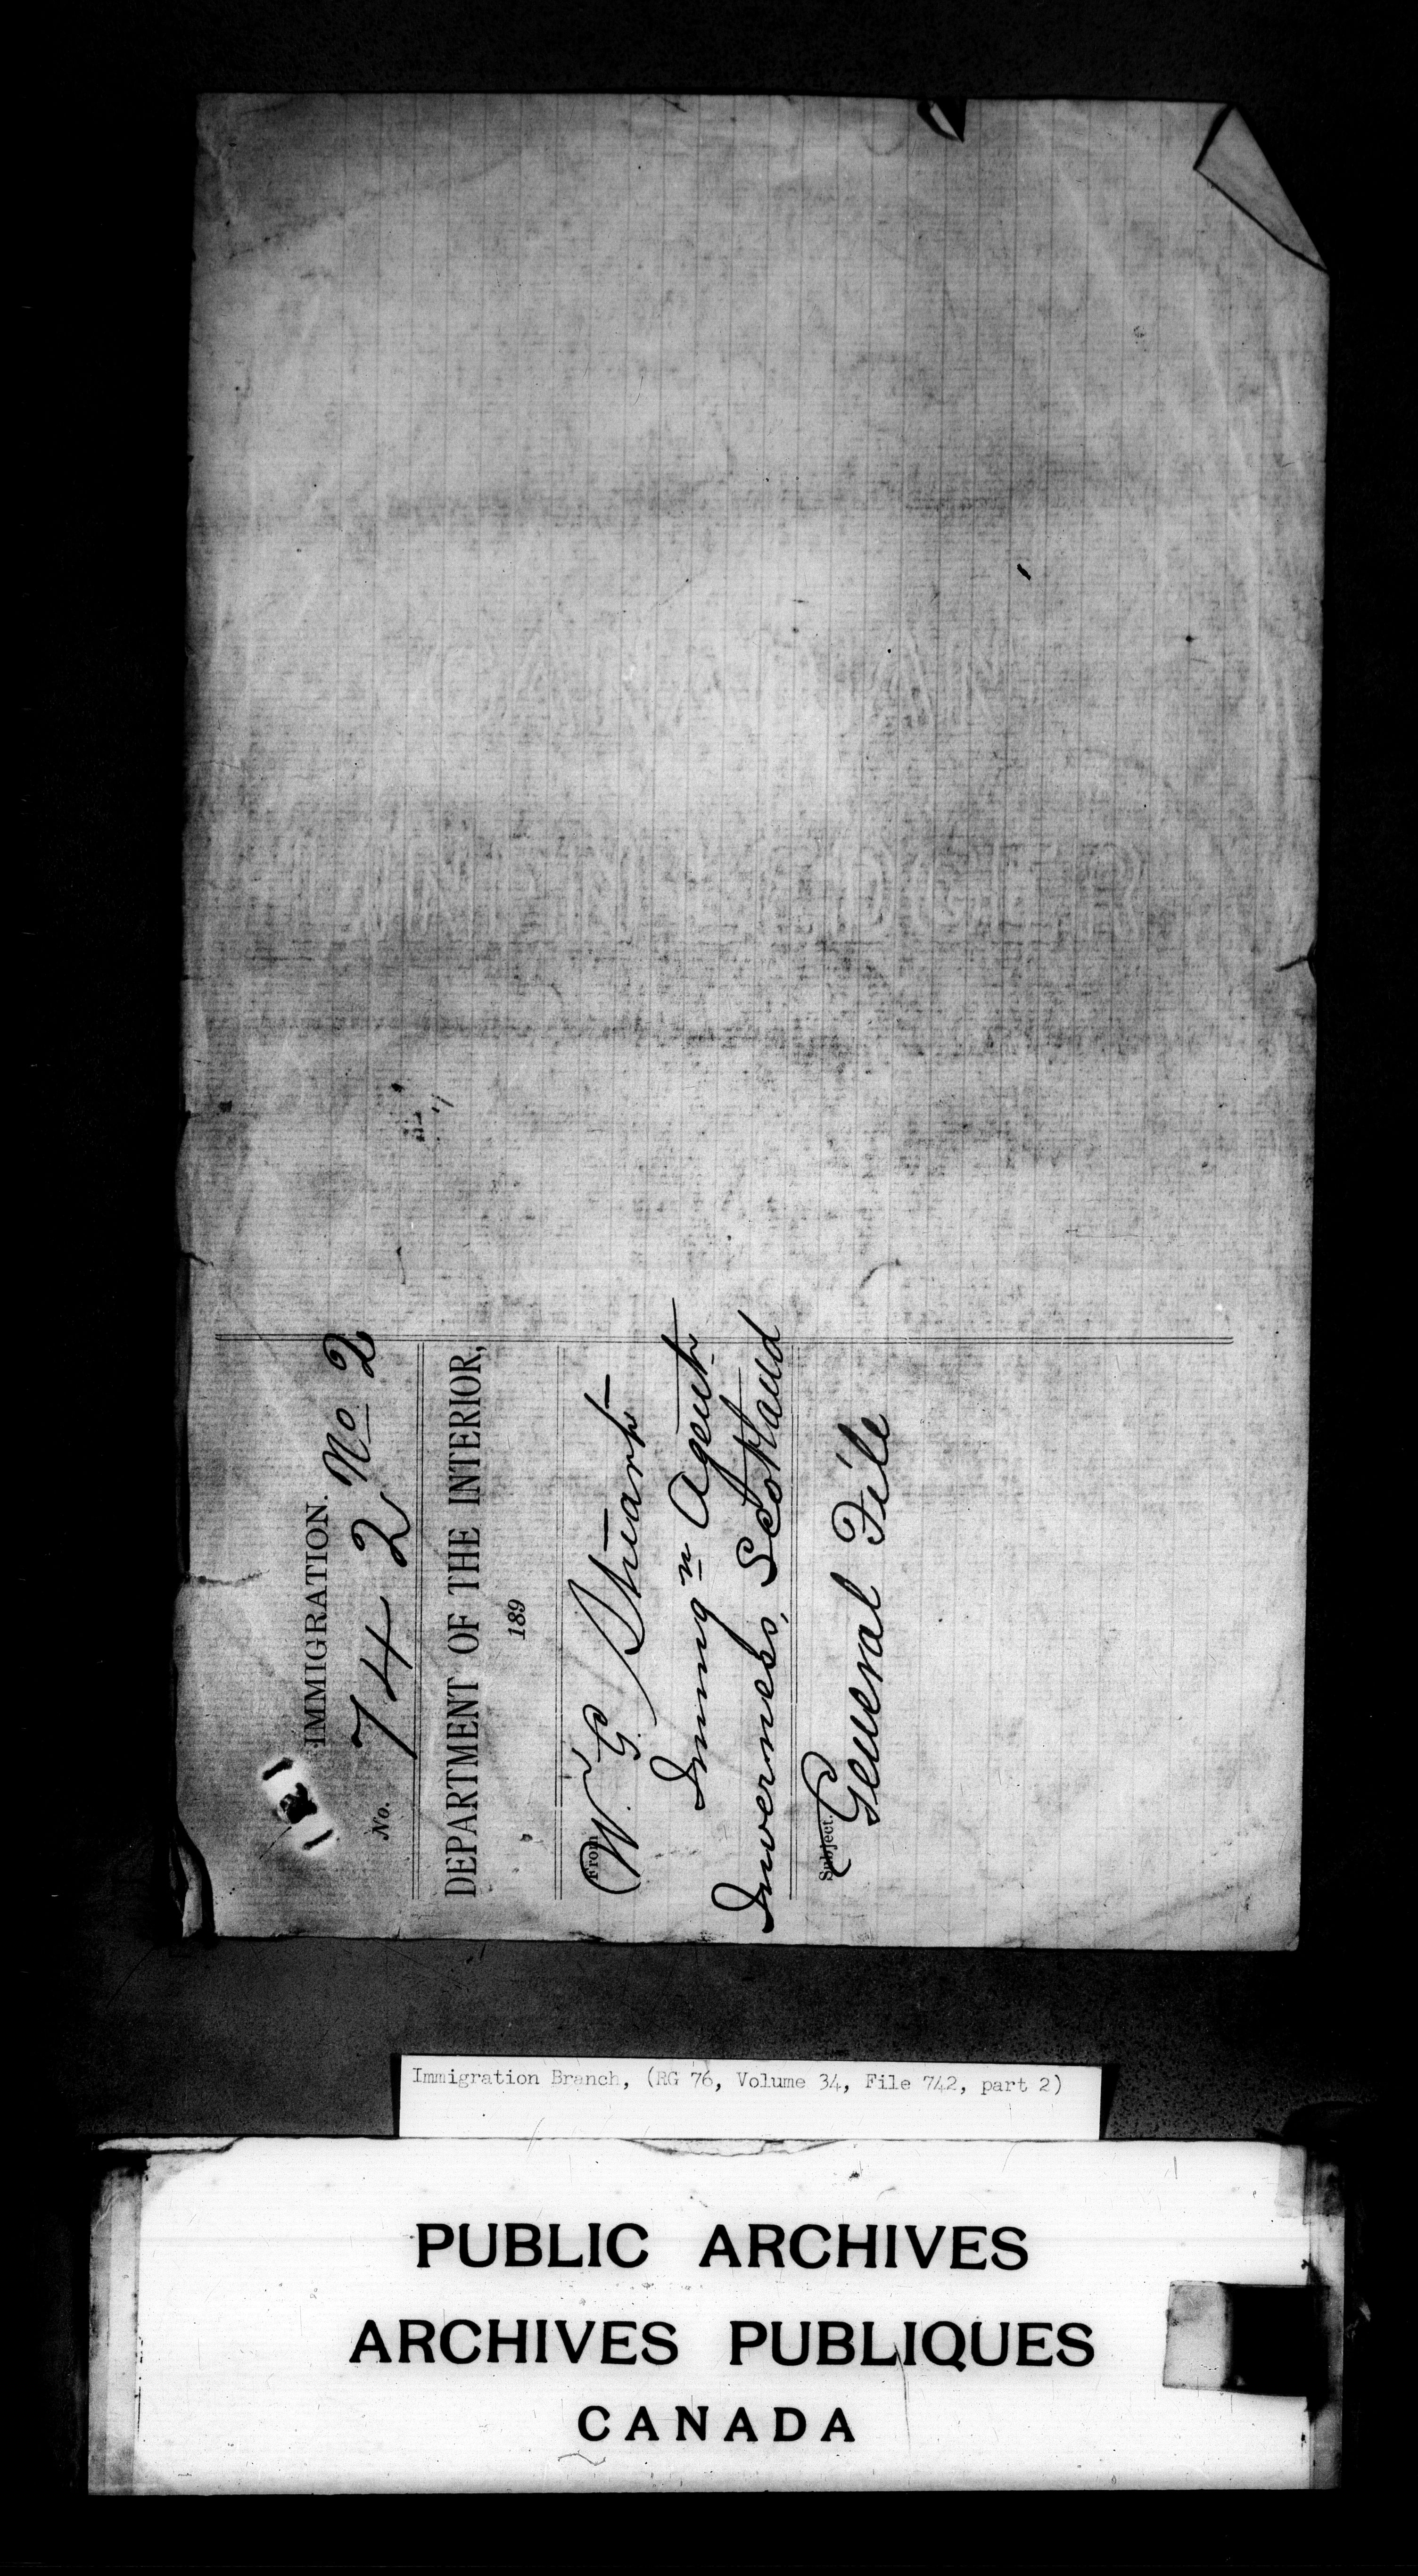 IMMIGRATION.
No. 742 No 2
DEPARTMENT OF THE INTERIOR,
189
From W. G. Stuart
Immig n Agent
Inverness, Scotland
Subject. General File
Immigration Branch, (RG 76, Volume 34, File 742, part 2)
PUBLIC ARCHIVES
ARCHIVES PUBLIQUES
CANADA